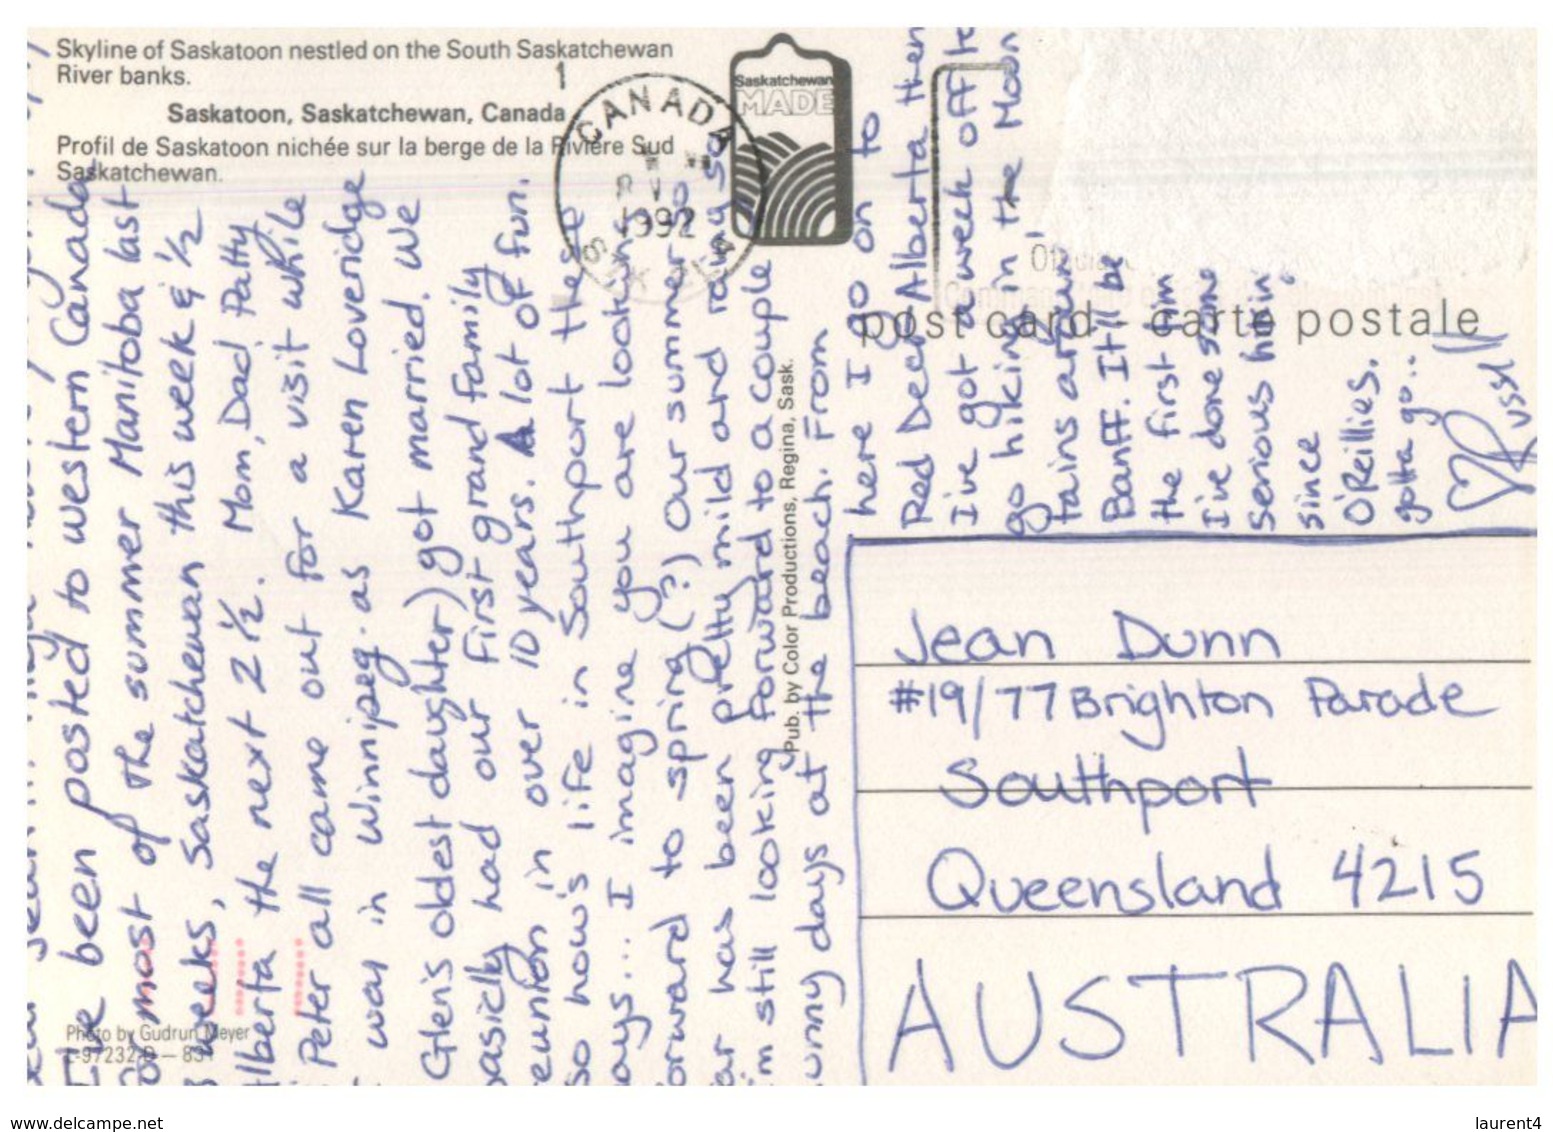 Skyline of Saskatoon nestled on the South Saskatchewan
River banks.
Saskatoon, Saskatchewan, Canada
Profil de Saskatoon nichée sur la berge de la Rivière Sud
Saskatchewan.
1
CANADA
1992
Saskatchewan
MADE
post card carte postale
I've been posted to western Canada
for most of the summer Manitoba last
3 weeks, Saskatchewan this week & ½
Alberta the next 2 ½. Mom, Dad Patty
& Peter all came out for a visit while
I was in Winnipeg. as Karen Loveridge
(Glen's oldest daughter) got married. We
basically had our first grand family
reunion in over 10 years. A lot of fun.
So how's life in Southport these
days... I imagine you are looking
forward to spring (?) Our summer so
far has been pretty mild and rainy so
I'm still looking forward to a couple
sunny days at the beach. From
here I go on to
Red Deer, Alberta then
I've got a week off to
go hiking in the Moun
tains around
Banff. It'll be
the first time
I've done some
serious hikin'
since
O'Reillies.
gotta go..
Russll
Jean Dunn
#19/77 Brighton Parade
Southport
Queensland 4215
AUSTRALIA
Pub. by Color Productions, Regina, Sask.
Photo by Gudrun Meyer
www.delcampe.net
laurent4